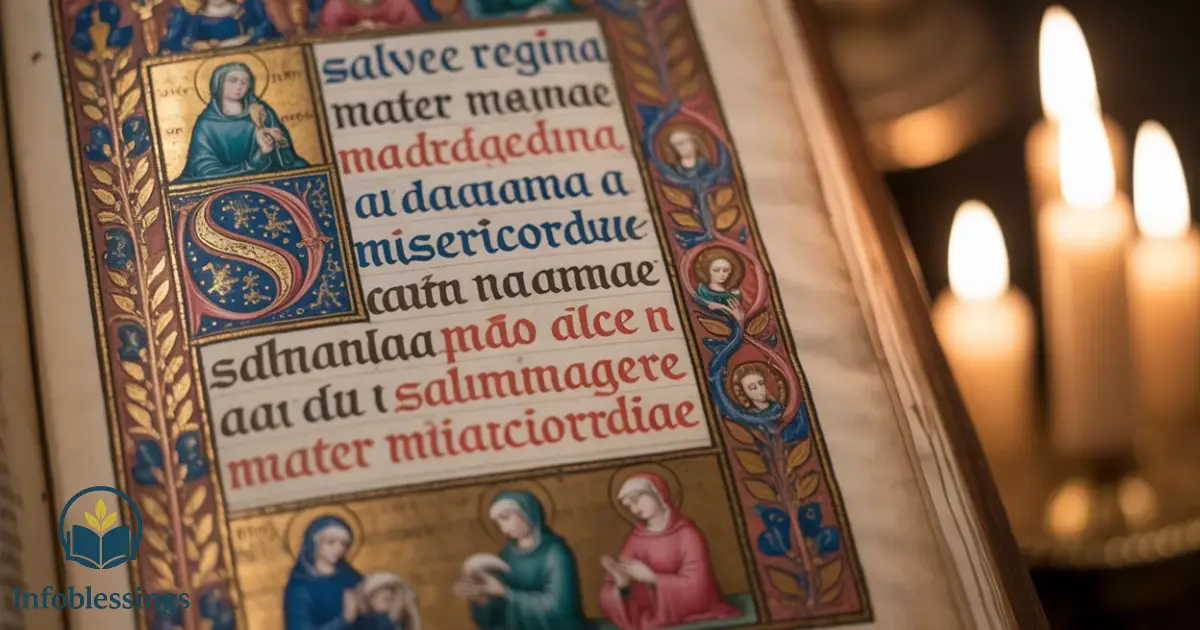 salvee regina
mater mamae
madrdgedina
au daaıama a
misericorduıe
caıtn naammae
sdlnanlaa pmão alce n
aaı du ı salımmagere
mater mïiaıcıorrdiae
Infoblessings